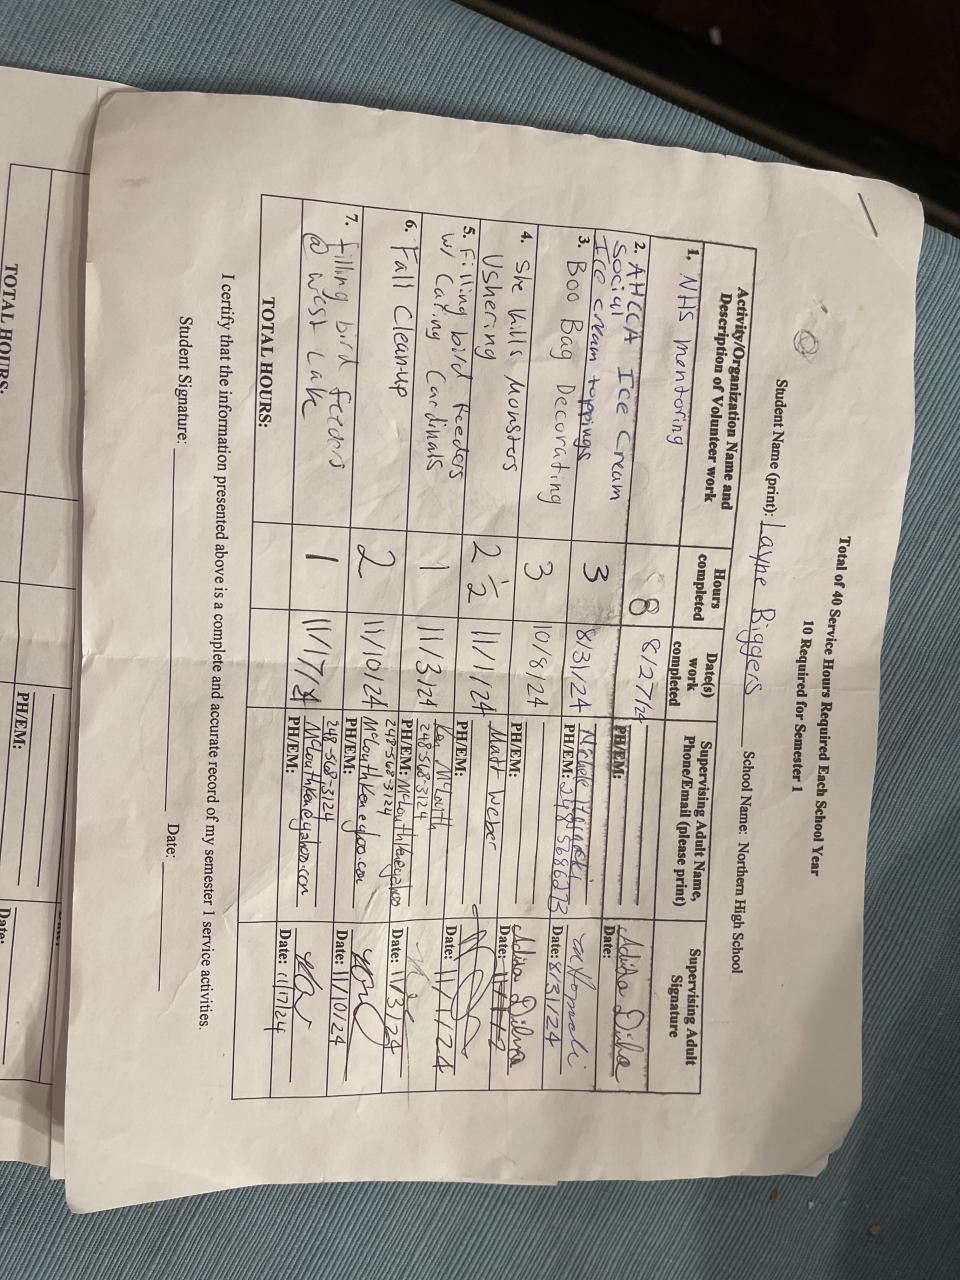 Total of 40 Service Hours Required Each School Year
10 Required for Semester 1
Student Name (print): Layne Biggers School Name: Northern High School
Activity/Organization Name and Description of Volunteer work
Hours completed
Date(s) work completed
Supervising Adult Name, Phone/Email (please print)
Supervising Adult Signature
1. NHS mentoring
8
8/27/24
PH/EM:
Date:
2. AHCCA Ice Cream
Social
Ice cream toppings
3
8/31/24
PH/EM: 248 5686273
Date: 8/31/24
3. Boo Bag Decorating
3
10/8/24
PH/EM:
Date:
4. She Kills Monsters
Ushering
2 1/2
11/1/24
Matt Weber
PH/EM:
Date: 11/1/24
5. Filling bird feeders
w/ Caring Cardinals
1
11/3/24
Ken McLouth
248-568-3124
PH/EM:
Date: 11/3/24
6. Fall Clean-up
2
11/10/24
248-568-3124
PH/EM:
Date: 11/10/24
7. filling bird feeders
@ West Lake
1
11/17/24
248-568-3124
PH/EM:
Date: 11/17/24
TOTAL HOURS:
I certify that the information presented above is a complete and accurate record of my semester 1 service activities.
Student Signature: Date:
TOTAL HOURS:
PH/EM:
Date: